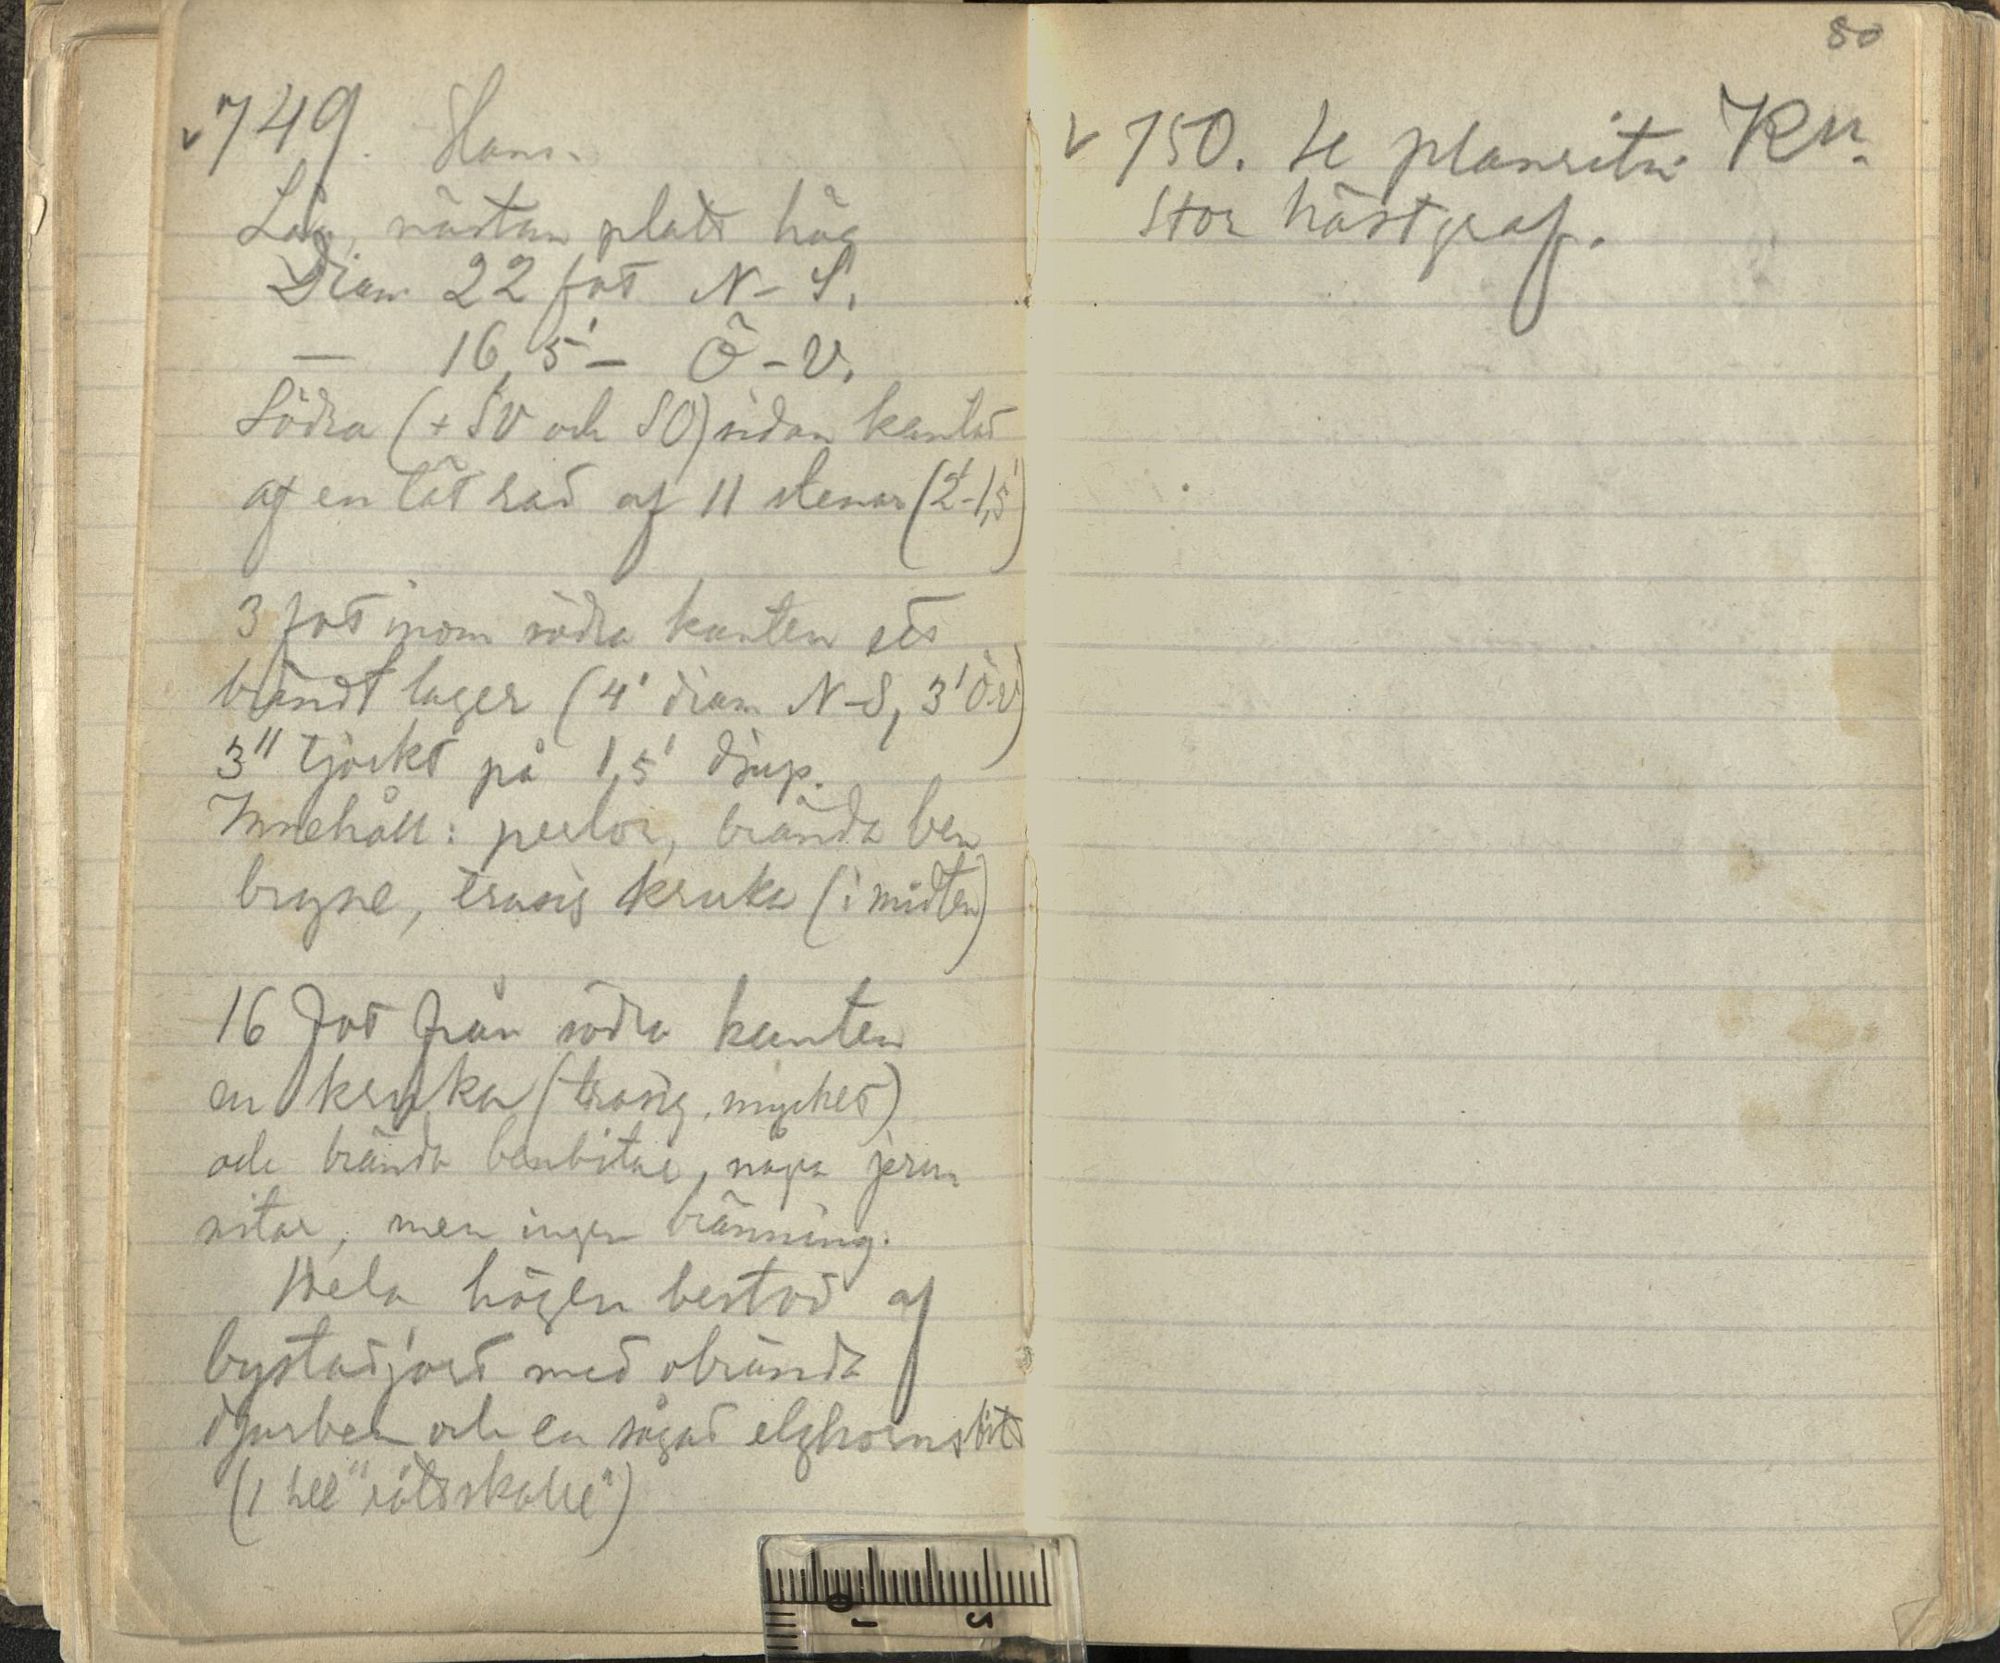 749. Ham.
Låg, nästan platt hög
Diam 22 fot N–S.
— 16,5' – Ö–V.
Södra (+ SV och SO) sidan kantad
af en tät rad af 11 stenar (2'–1,5')
3 fot inom södra kanten ett
brändt lager (4' diam N–S, 3' Ö-V)
3" tjockt på 1,5' djup.
Innehåll: perlor, brända ben
bryne, trasig kruka (i midten)
16 fot från södra kanten
en kruka (trasig, mycket)
och brända benbitar, några jern
nitar, men ingen bränning.
Hela högen bestod af
bystadjord med obrända
djurben och en sågad elghornsbit
(1 hel
80
750. Se planritn. Ku.
Stor hästgraf.
0 1 2